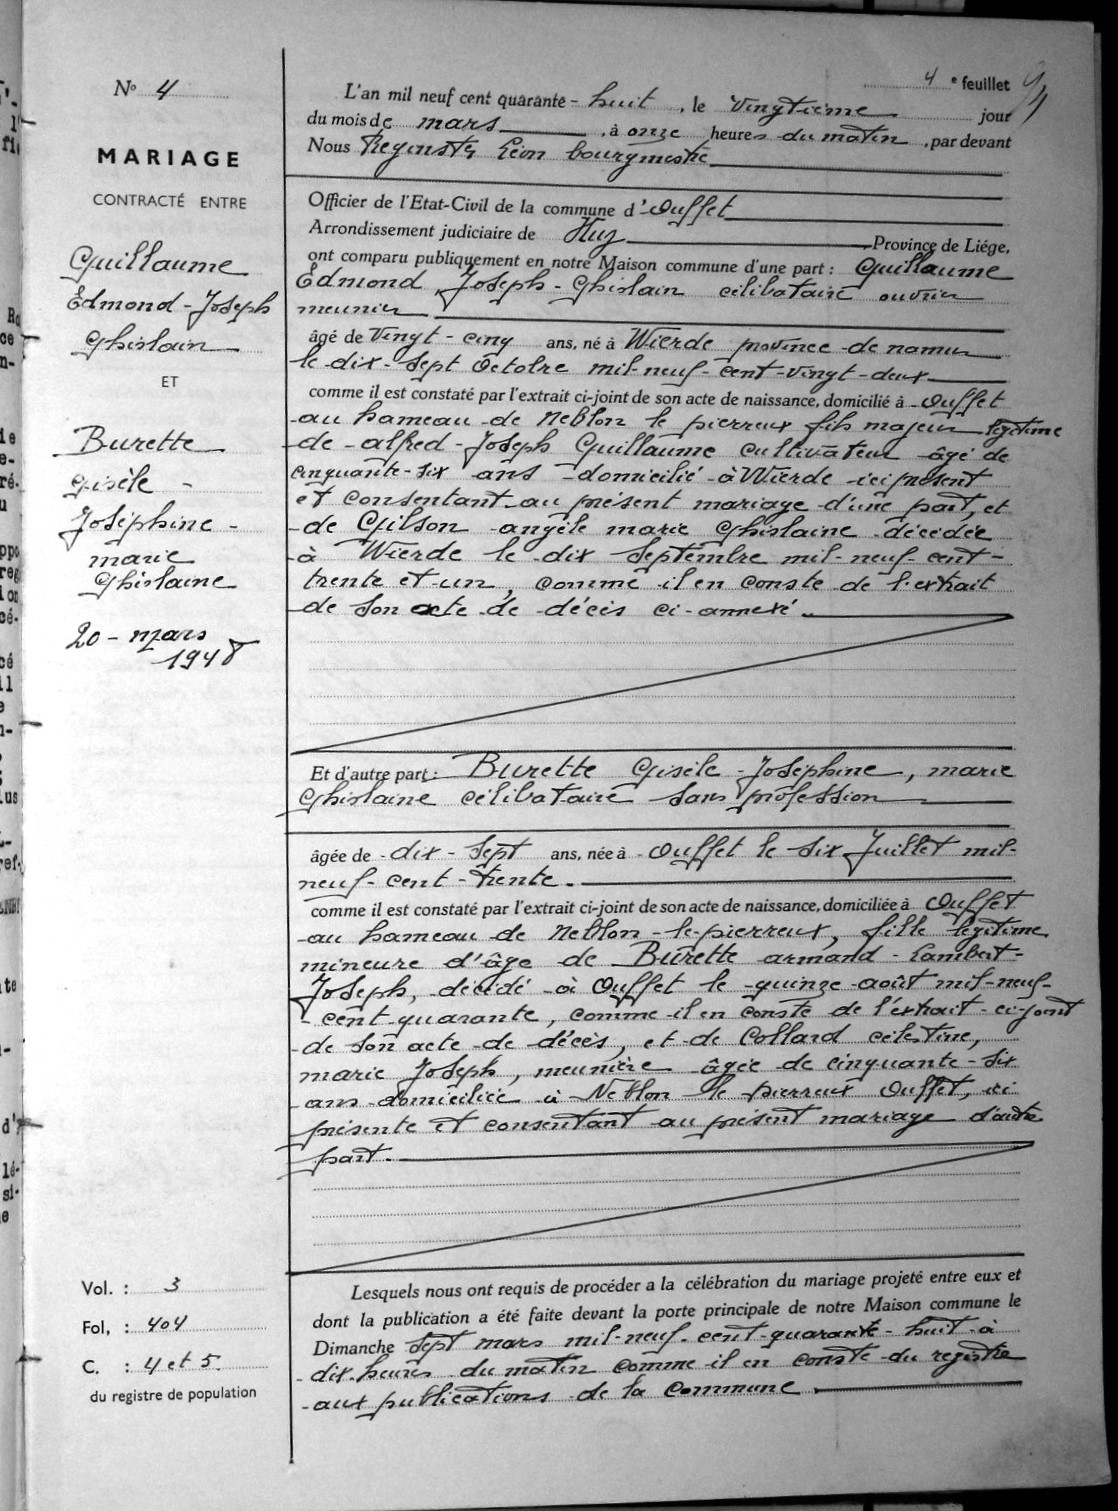 4 e feuillet
N° 4
MARIAGE
CONTRACTÉ ENTRE
Guillaume
Edmond-Joseph
Ghislain
ET
Burette
Gisèle -
Joséphine -
marie
Ghislaine
20 - mars
1948
Vol. : 3
Fol, : 404
C. : 4 et 5.
du registre de population
L'an mil neuf cent quarante - huit , le vingtième jour
du mois de mars , à onze heures du matin , par devant
Nous Reginster Léon bourgmestre
Officier de l'Etat-Civil de la commune d'Ouffet
Arrondissement judiciaire de Huy Province de Liége,
ont comparu publiquement en notre Maison commune d'une part : Guillaume
Edmond Joseph - Ghislain célibataire ouvrier
meunier
âgé de vingt - cinq ans, né à Wierde province de namur
le dix-sept Octobre mil-neuf-cent-vingt-deux
comme il est constaté par l'extrait ci-joint de son acte de naissance, domicilié à Ouffet
au hameau de Neblon le pierreux fils majeur légitime
de alfred-Joseph Guillaume cultivateur âgé de
cinquante-six ans domicilié à Wierde ici présent
et consentant au présent mariage d'une part, et
de Gilson angèle marie Ghislaine décédée
à Wierde le dix Septembre mil-neuf-cent-
trente et un, comme il en conste de l'extrait
de son acte de décès ci-annexé.
Et d'autre part : Burette Gisèle - Joséphine, marie
Ghislaine célibataire sans profession
âgée de dix - sept ans, née à Ouffet le six Juillet mil-
neuf-cent-trente.
comme il est constaté par l'extrait ci-joint de son acte de naissance, domiciliée à Ouffet
au hameau de Neblon-le-pierreux, fille légitime
mineure d'âge de Burette armand - Lambert -
Joseph, décédé à Ouffet le quinze août mil-neuf-
cent-quarante, comme il en conste de l'extrait ci-joint
de son acte de décès, et de Collard célestine,
marie Joseph, meunière âgée de cinquante-six
ans domiciliée à Neblon le pierreux Ouffet, ici
présente et consentant au présent mariage d'autre
part.
Lesquels nous ont requis de procéder a la célébration du mariage projeté entre eux et
dont la publication a été faite devant la porte principale de notre Maison commune le
Dimanche sept mars mil-neuf-cent-quarante-huit à
dix heures du matin comme il en conste du registre
aux publications de la commune.